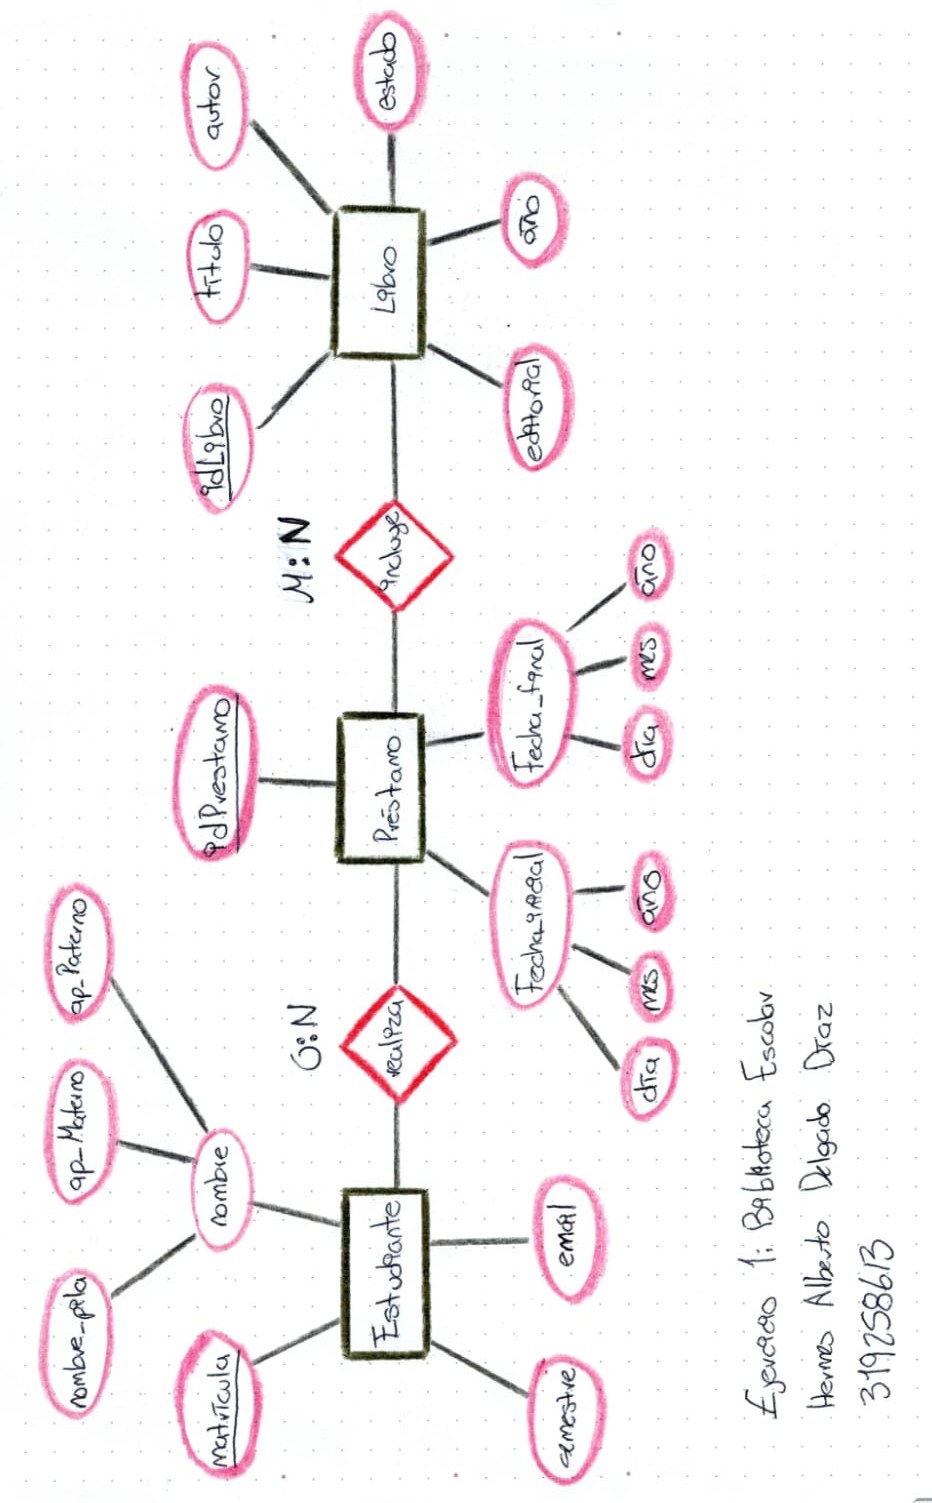 nombre_pila
ap_Materno
ap_Paterno
matrícula
nombre
idPrestamo
idLibro
título
autor
O:N
M:N
Estudiante
realiza
Préstamo
incluye
Libro
estado
semestre
email
Fecha_inicial
Fecha_final
editorial
año
día
mes
año
día
mes
año
Ejercicio 1: Biblioteca Escolar
Hermes Alberto Delgado Díaz
319258613